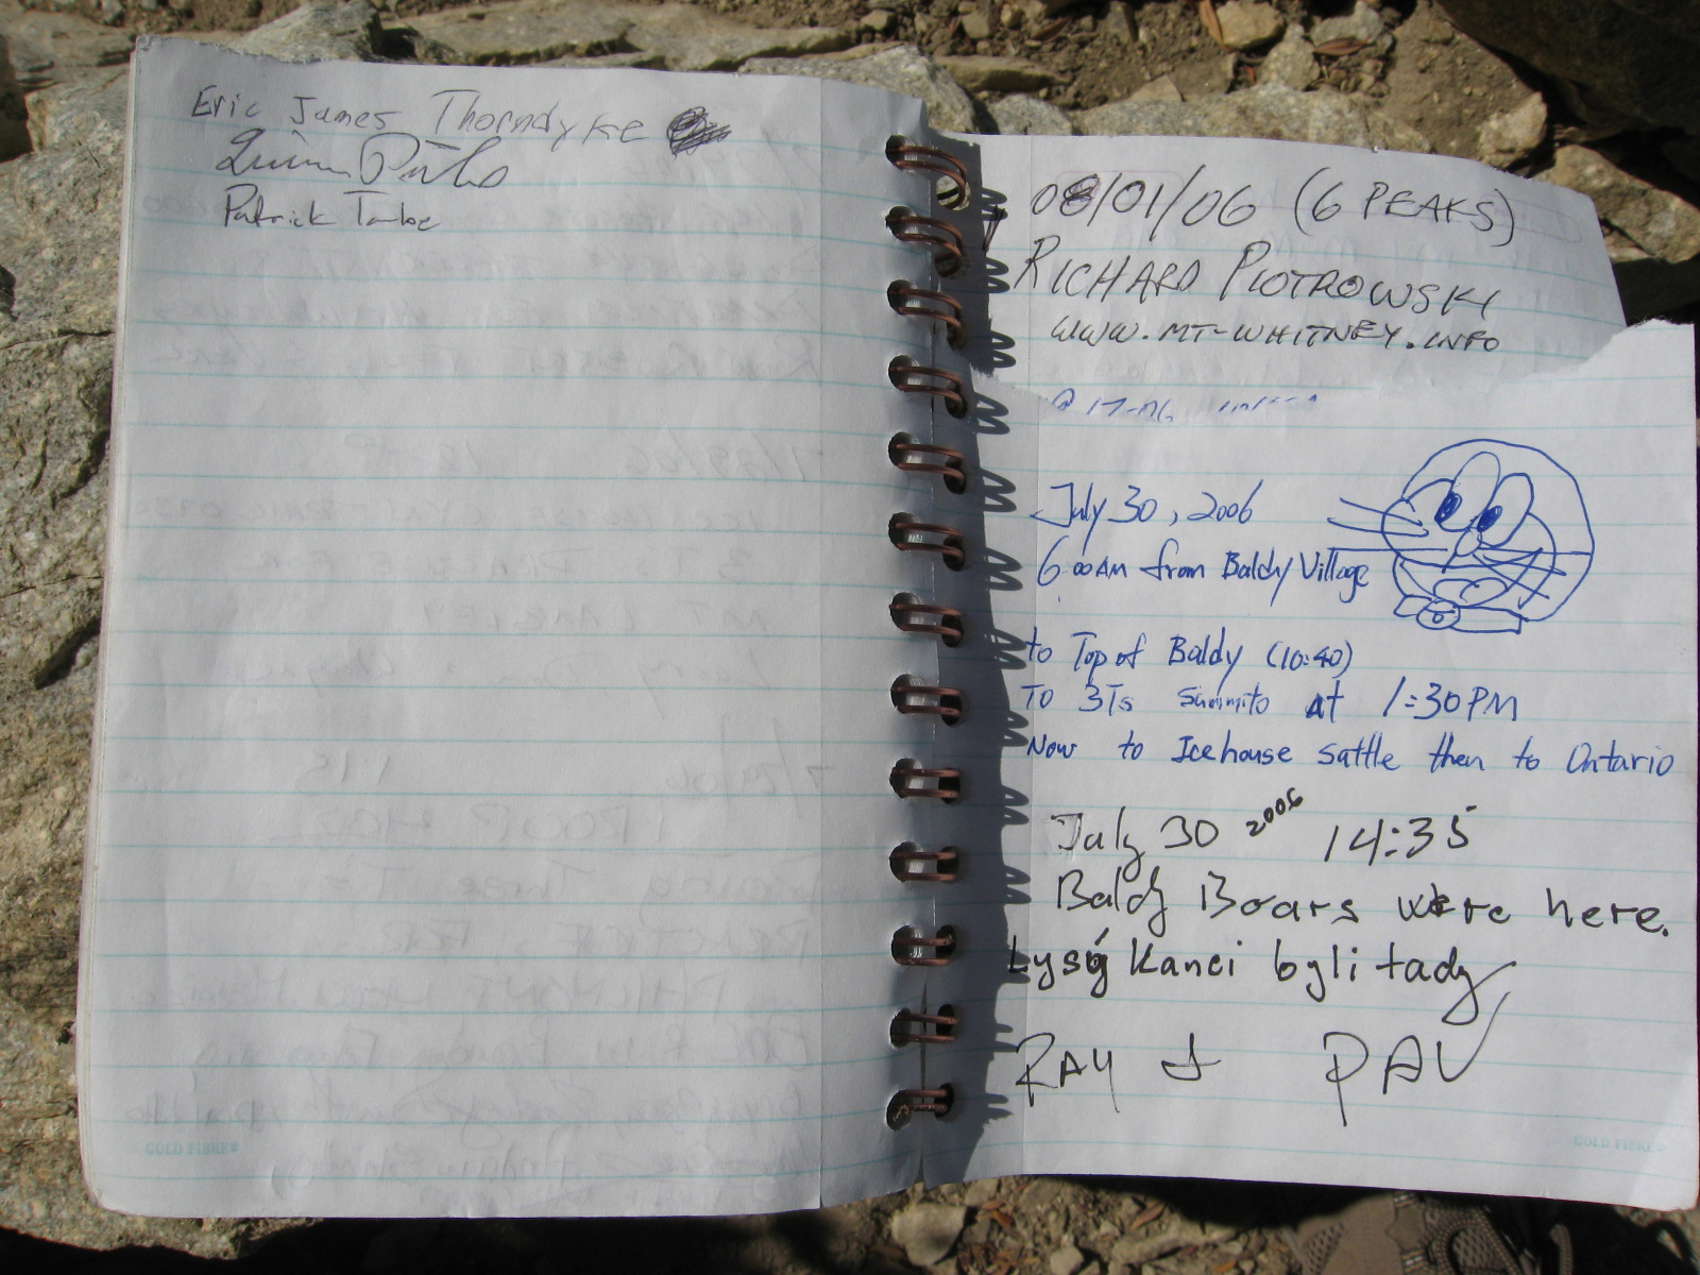 Eric James Thorndyke
Patrick
GOLD FIBRE®
08/01/06 (6 PEAKS)
RICHARD PIOTROWSKI
WWW.MT-WHITNEY.INFO
July 30, 2006
6:00AM from Baldy Village
to Top of Baldy (10:40)
TO 3Ts summits At 1:30PM
Now to Icehouse sattle then to Ontario
July 30 2006 14:35
Baldy Boars were here.
Lysý Kanci byli tady
RAY & PAV
GOLD FIBRE®